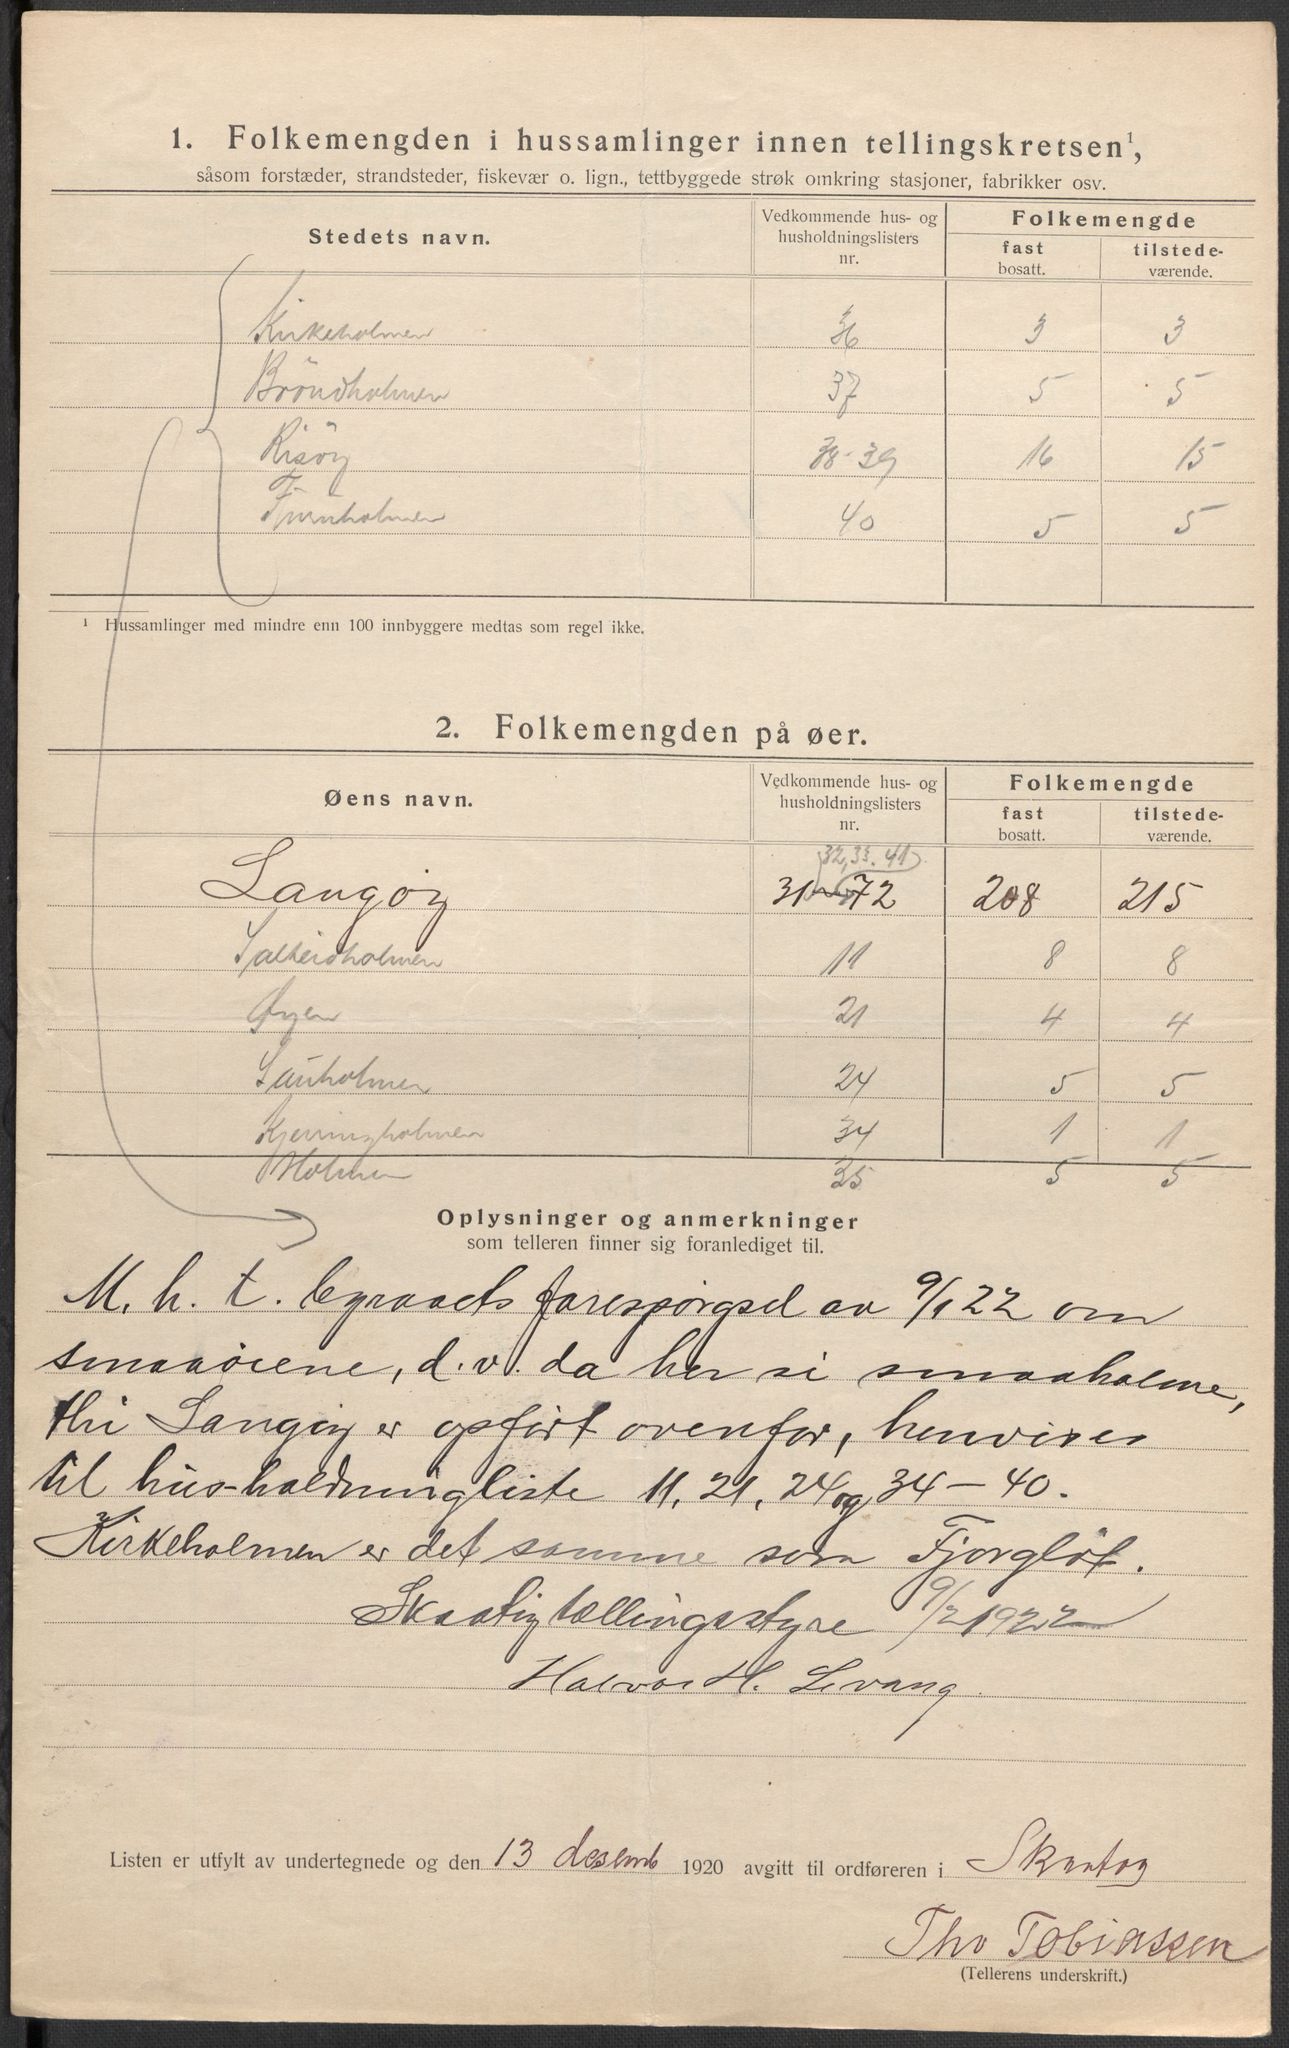 1. Folkemengden i hussamlinger innen tellingskretsen¹,
såsom forstæder, strandsteder, fiskevær o. lign., tettbyggede strøk omkring stasjoner, fabrikker osv.
Stedets navn. Vedkommende hus- og husholdningslisters nr. Folkemengde fast bosatt. tilstedeværende.
Kirkeholmen 36 3 3
Bröndholmen 37 5 5
Risöy 38-39 16 15
Furuholmen 40 5 5
¹ Hussamlinger med mindre enn 100 innbyggere medtas som regel ikke.
2. Folkemengden på øer.
Øens navn. Vedkommende hus- og husholdningslisters nr. Folkemengde fast bosatt. tilstedeværende.
32, 33, 41
Langöy 31-72 208 215
11 8 8
Øyen 21 4 4
24 5 5
Kjerringholmen 34 1 1
Holmen 35 5 5
Oplysninger og anmerkninger
som telleren finner sig foranlediget til.
M. h. t. byraaets forespörgsel av 9/1 22 om
smaaöiene, d. v. da her si smaaholme,
thi Langöy er opfört ovenfor, henvises
til hus-holdningliste 11, 21, 24 og 34-40.
Kirkeholmen er det samme som Fjorgløt.
Skaatöy tællingsstyre 9/2 1922
Halvor H. Levang
Listen er utfylt av undertegnede og den 13 desemb 1920 avgitt til ordføreren i Skaatøy
Tho Tobiassen
(Tellerens underskrift.)